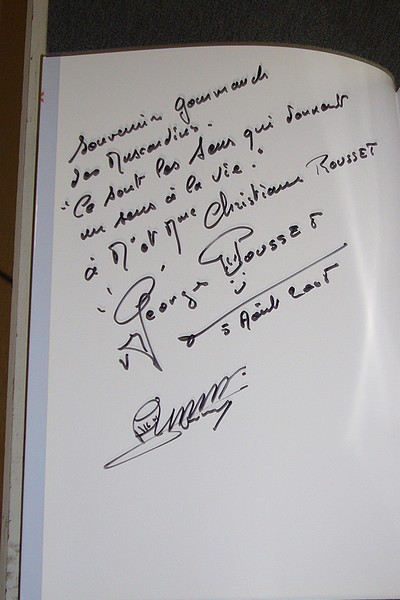 Souvenir Gourmand
des Muscardins.
"Ce sont les sens qui donnent
un sens à la vie."
à Mr et Mme Christiane ROUSSET
Georges ROUSSET
5 Août 2005